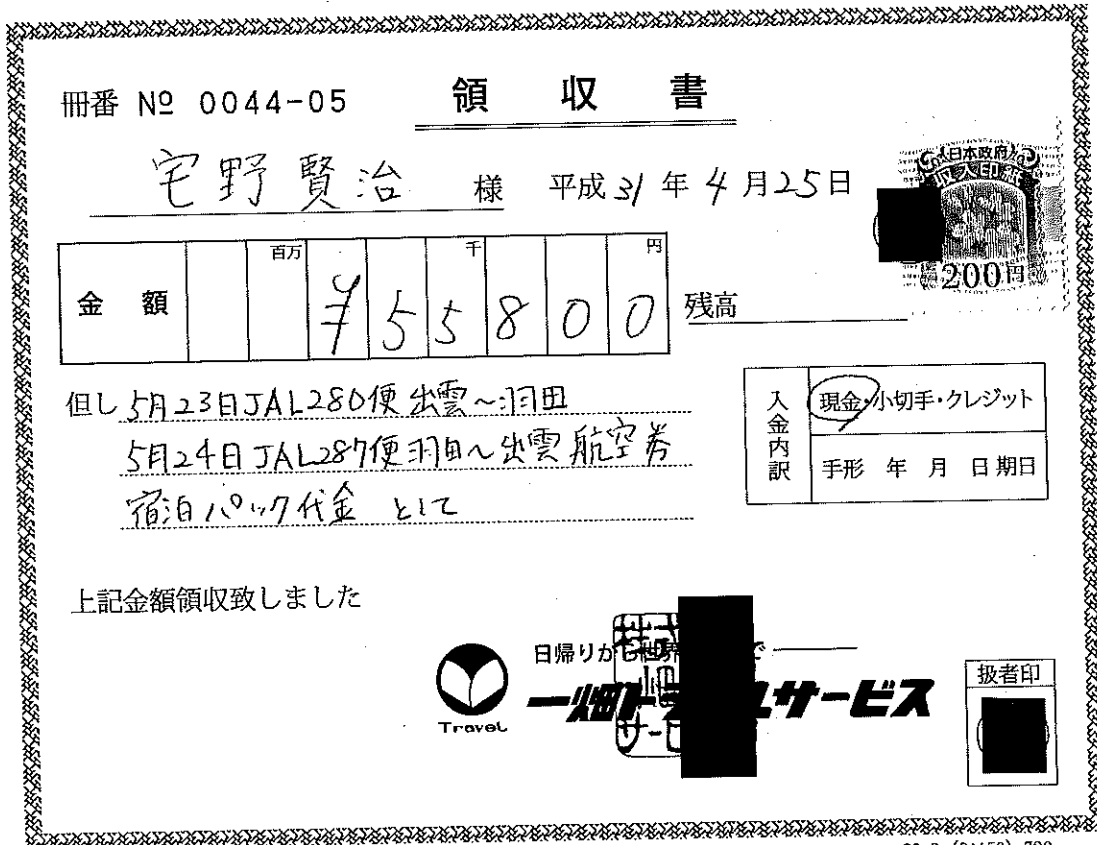 冊番 № 0044-05
領収書
宅野賢治 様 平成31年4月25日
日本政府
収入印紙
200円
金額 百万 千 円
¥55800
残高
但し 5月23日JAL280便 出雲〜羽田
5月24日JAL287便 羽田〜出雲 航空券
宿泊パック代金 として
入金内訳
現金・小切手・クレジット
手形 年 月 日期日
上記金額領収致しました
日帰りから世界
Travel
一畑トラベルサービス
扱者印